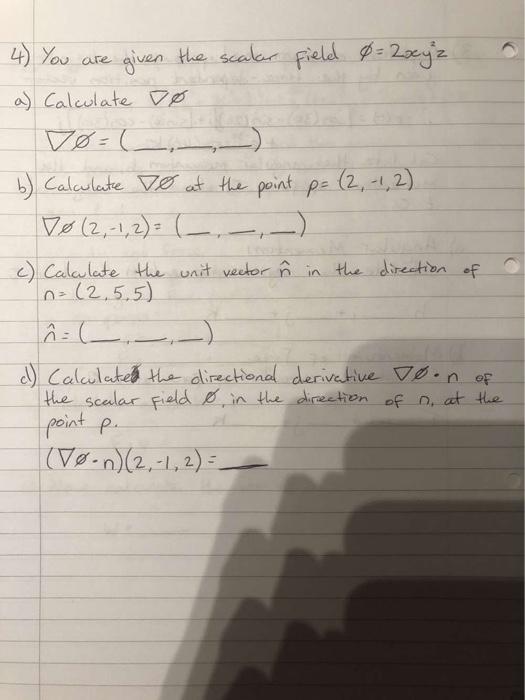 4) You are given the scalar field ø = 2xy²z
a) Calculate ∇ø
∇ø = (_,_,_)
b) Calculate ∇ø at the point p= (2,-1,2)
∇ø (2,-1,2)= (_,_,_)
c) Calculate the unit vector n̂ in the direction of
n= (2,5,5)
n̂ = (_,_,_)
d) Calculate the directional derivative ∇ø·n of
the scalar field ø, in the direction of n, at the
point p.
(∇ø·n)(2,-1,2)=_